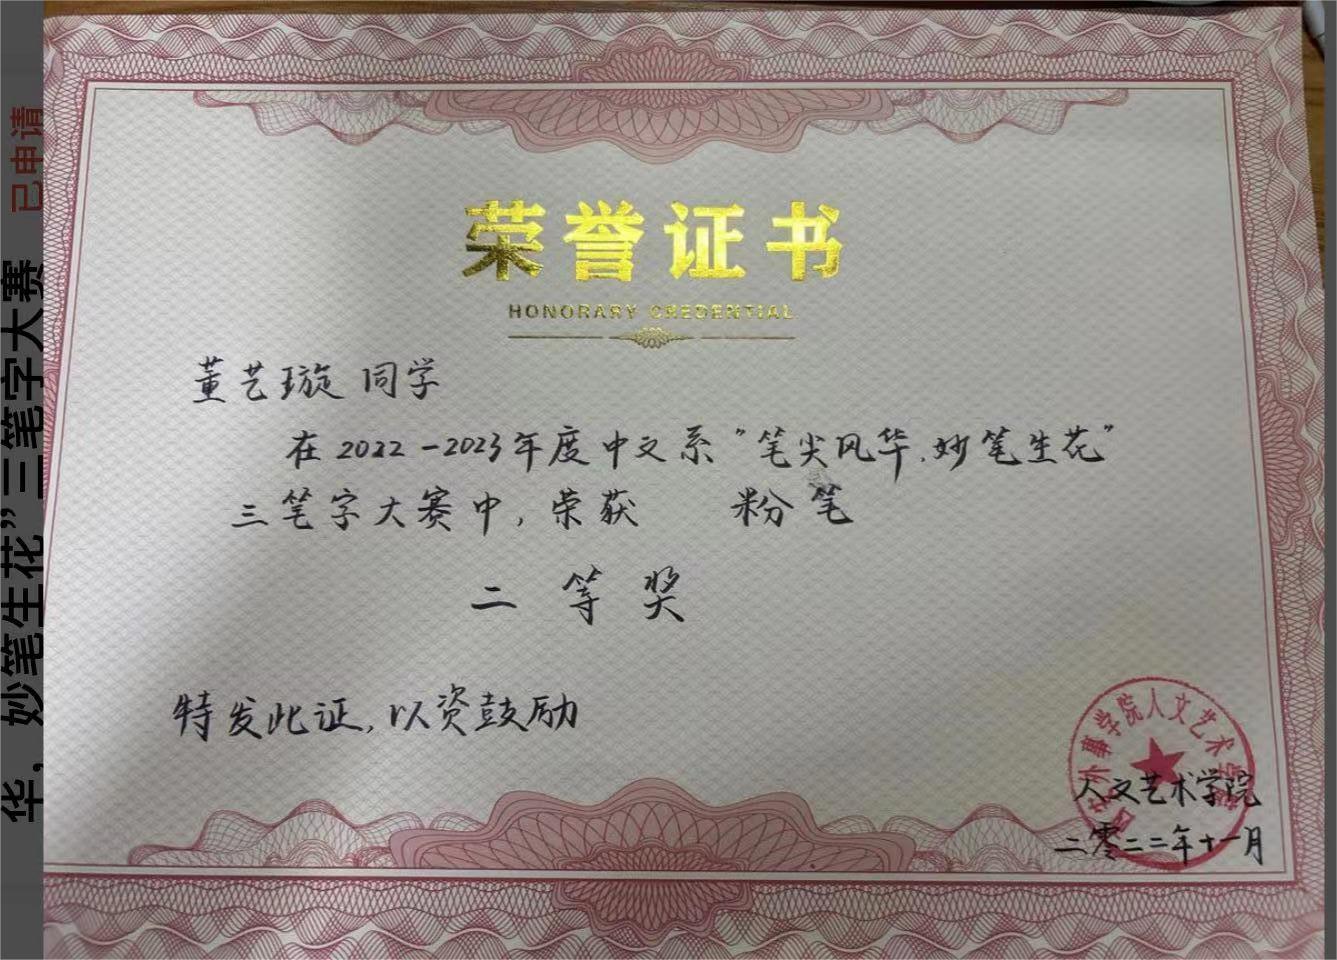 荣誉证书
HONORARY CREDENTIAL
董艺璇 同学
在2022-2023年度中文系"笔尖风华,妙笔生花"
三笔字大赛中,荣获 粉笔
二等奖
特发此证,以资鼓励
外事学院人文艺术学院
人文艺术学院
二零二二年十一月
华,妙笔生花”三笔字大赛
已申请